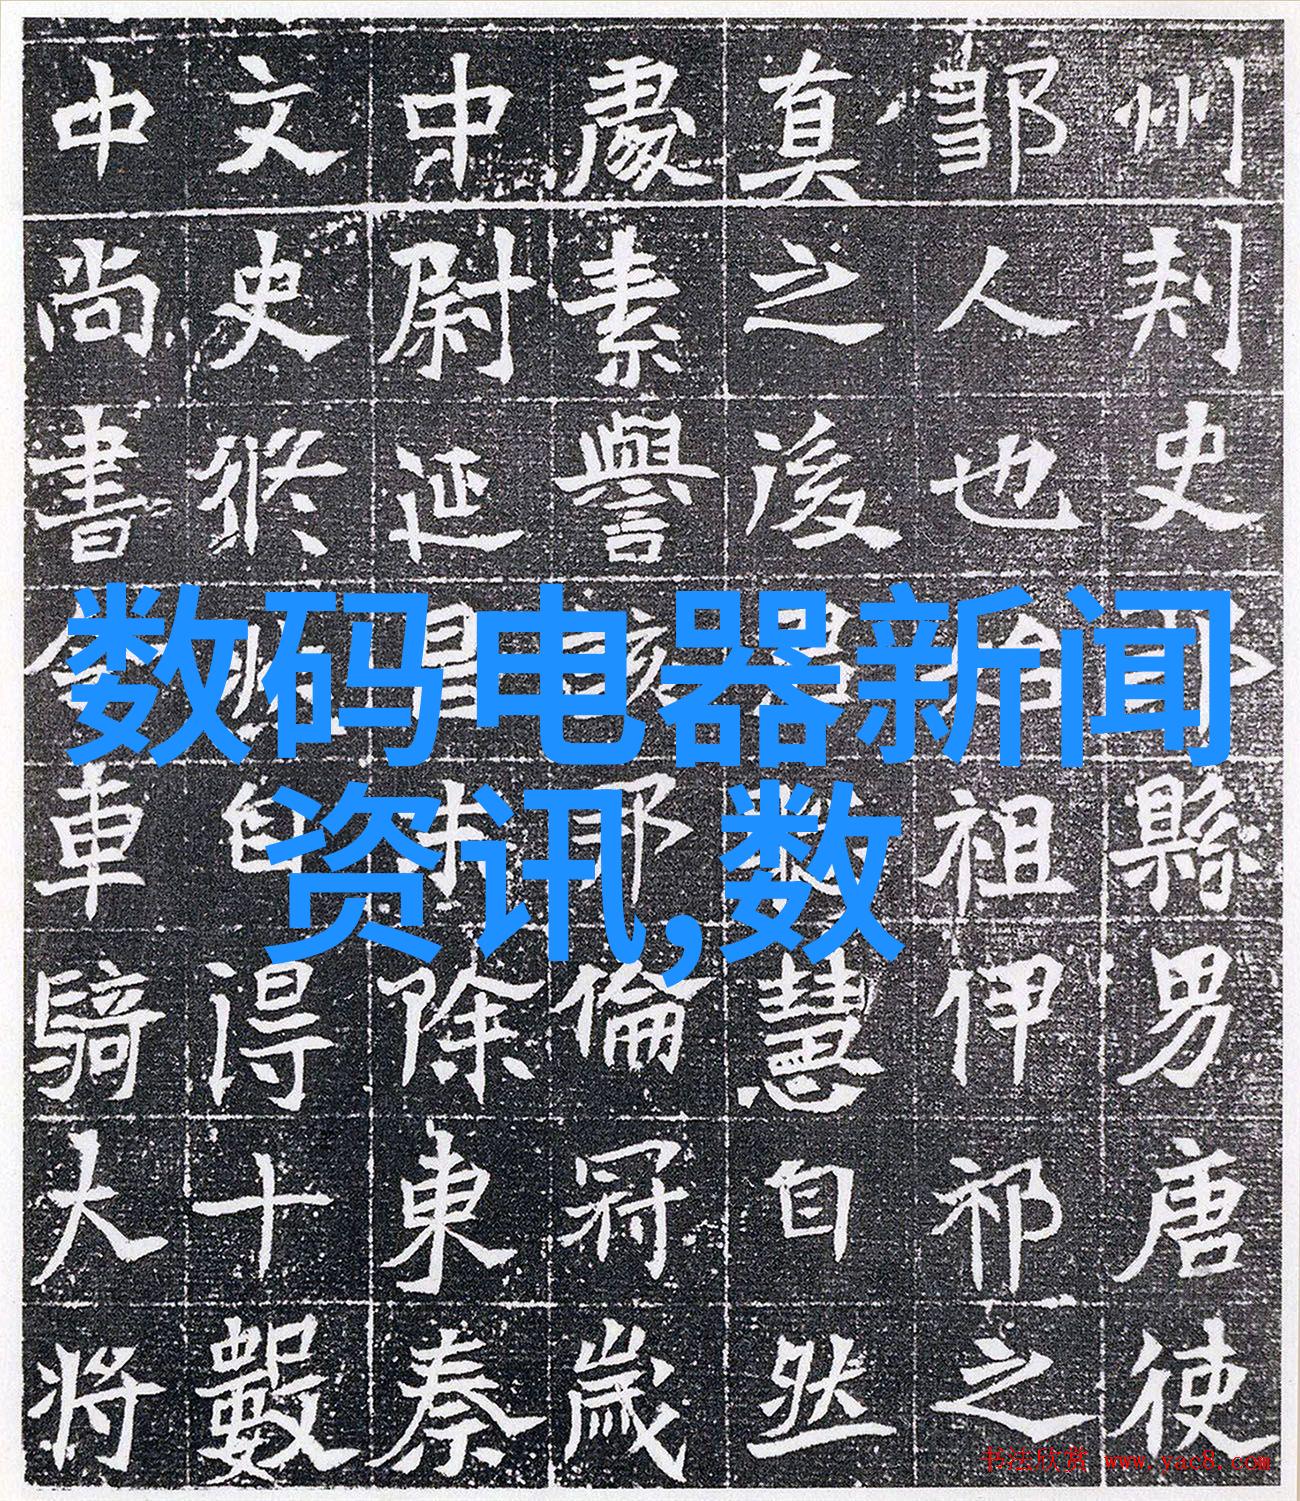 州刾史縣男唐使
人也始祖伊祁之
真之後慧自然
處素譽倫冠歲
中尉延昌除東秦
文史修自得十數
中尚書令車騎大將
数码电器新闻
资讯,数
书法欣赏 www.yac8.com